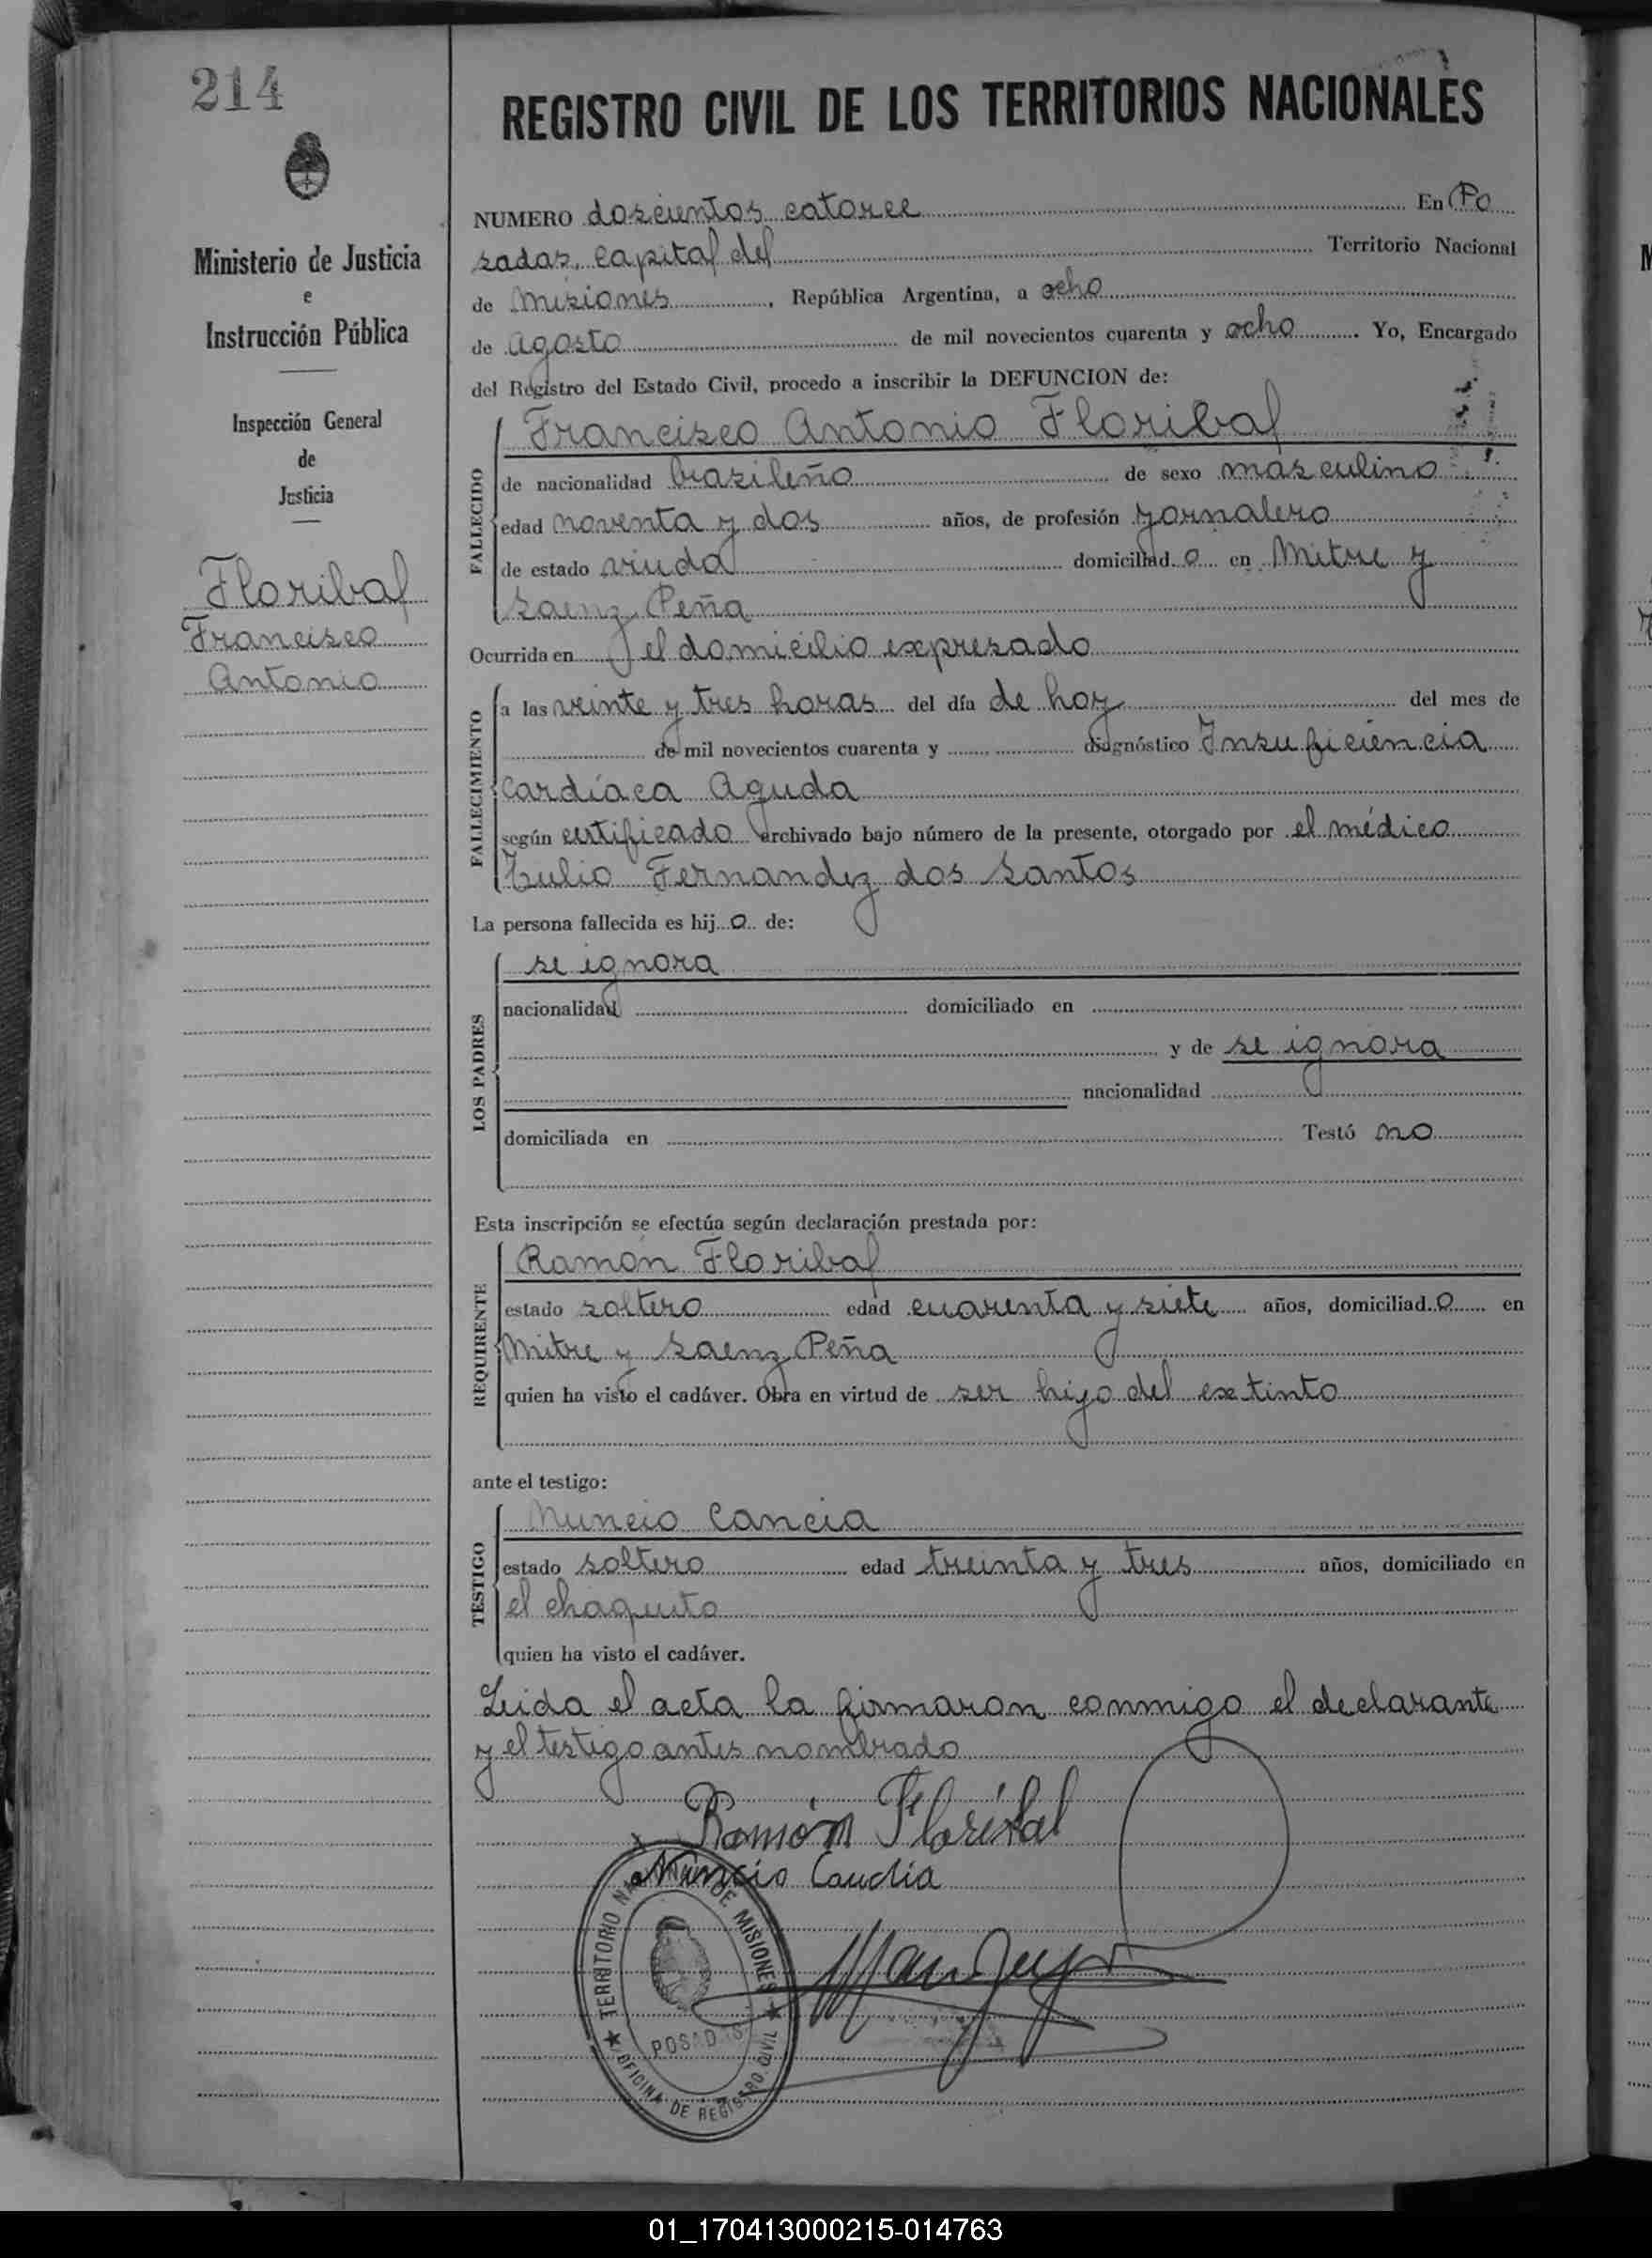 214
Ministerio de Justicia
e
Instrucción Pública
Inspección General
de
Justicia
Floribal
Francisco
Antonio
REGISTRO CIVIL DE LOS TERRITORIOS NACIONALES
NUMERO doscientos catorce En Po
sadas, capital del Territorio Nacional
de Misiones, República Argentina, a ocho
de Agosto de mil novecientos cuarenta y ocho. Yo, Encargado
del Registro del Estado Civil, procedo a inscribir la DEFUNCION de:
FALLECIDO
Francisco Antonio Floribal
de nacionalidad brasileño de sexo masculino
edad noventa y dos años, de profesión jornalero
de estado viudo domiciliado en Mitre y
Saenz Peña
Ocurrida en el domicilio expresado
FALLECIMIENTO
a las veinte y tres horas del día de hoy del mes de
de mil novecientos cuarenta y diagnóstico Insuficiencia
Cardíaca Aguda
según certificado archivado bajo número de la presente, otorgado por el médico
Tulio Fernandez dos Santos
La persona fallecida es hijo de:
LOS PADRES
se ignora
nacionalidad domiciliado en
y de se ignora
nacionalidad
domiciliada en Testó no
Esta inscripción se efectúa según declaración prestada por:
REQUIRENTE
Ramón Floribal
estado soltero edad cuarenta y siete años, domiciliado en
Mitre y Saenz Peña
quien ha visto el cadáver. Obra en virtud de ser hijo del extinto
ante el testigo:
TESTIGO
Nuncio Cancia
estado soltero edad treinta y tres años, domiciliado en
el chaquito
quien ha visto el cadáver.
Leida el acta la firmaron conmigo el declarante
y el testigo antes nombrado
Ramón Floribal
Nuncio Caudia
TERRITORIO NACIONAL DE MISIONES
POSADAS
OFICINA DE REGISTRO CIVIL
01_170413000215-014763